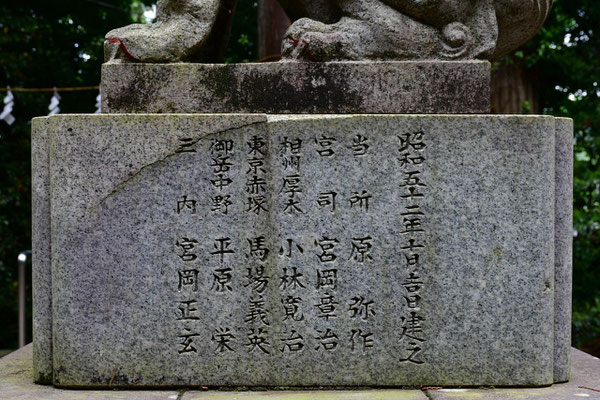 昭和五十二年十月吉日建之
当所 原 弥作
宮司 宮岡章治
相州厚木 小林寛治
東京赤塚 馬場義英
御岳中野 平原 栄
三内 宮岡正玄